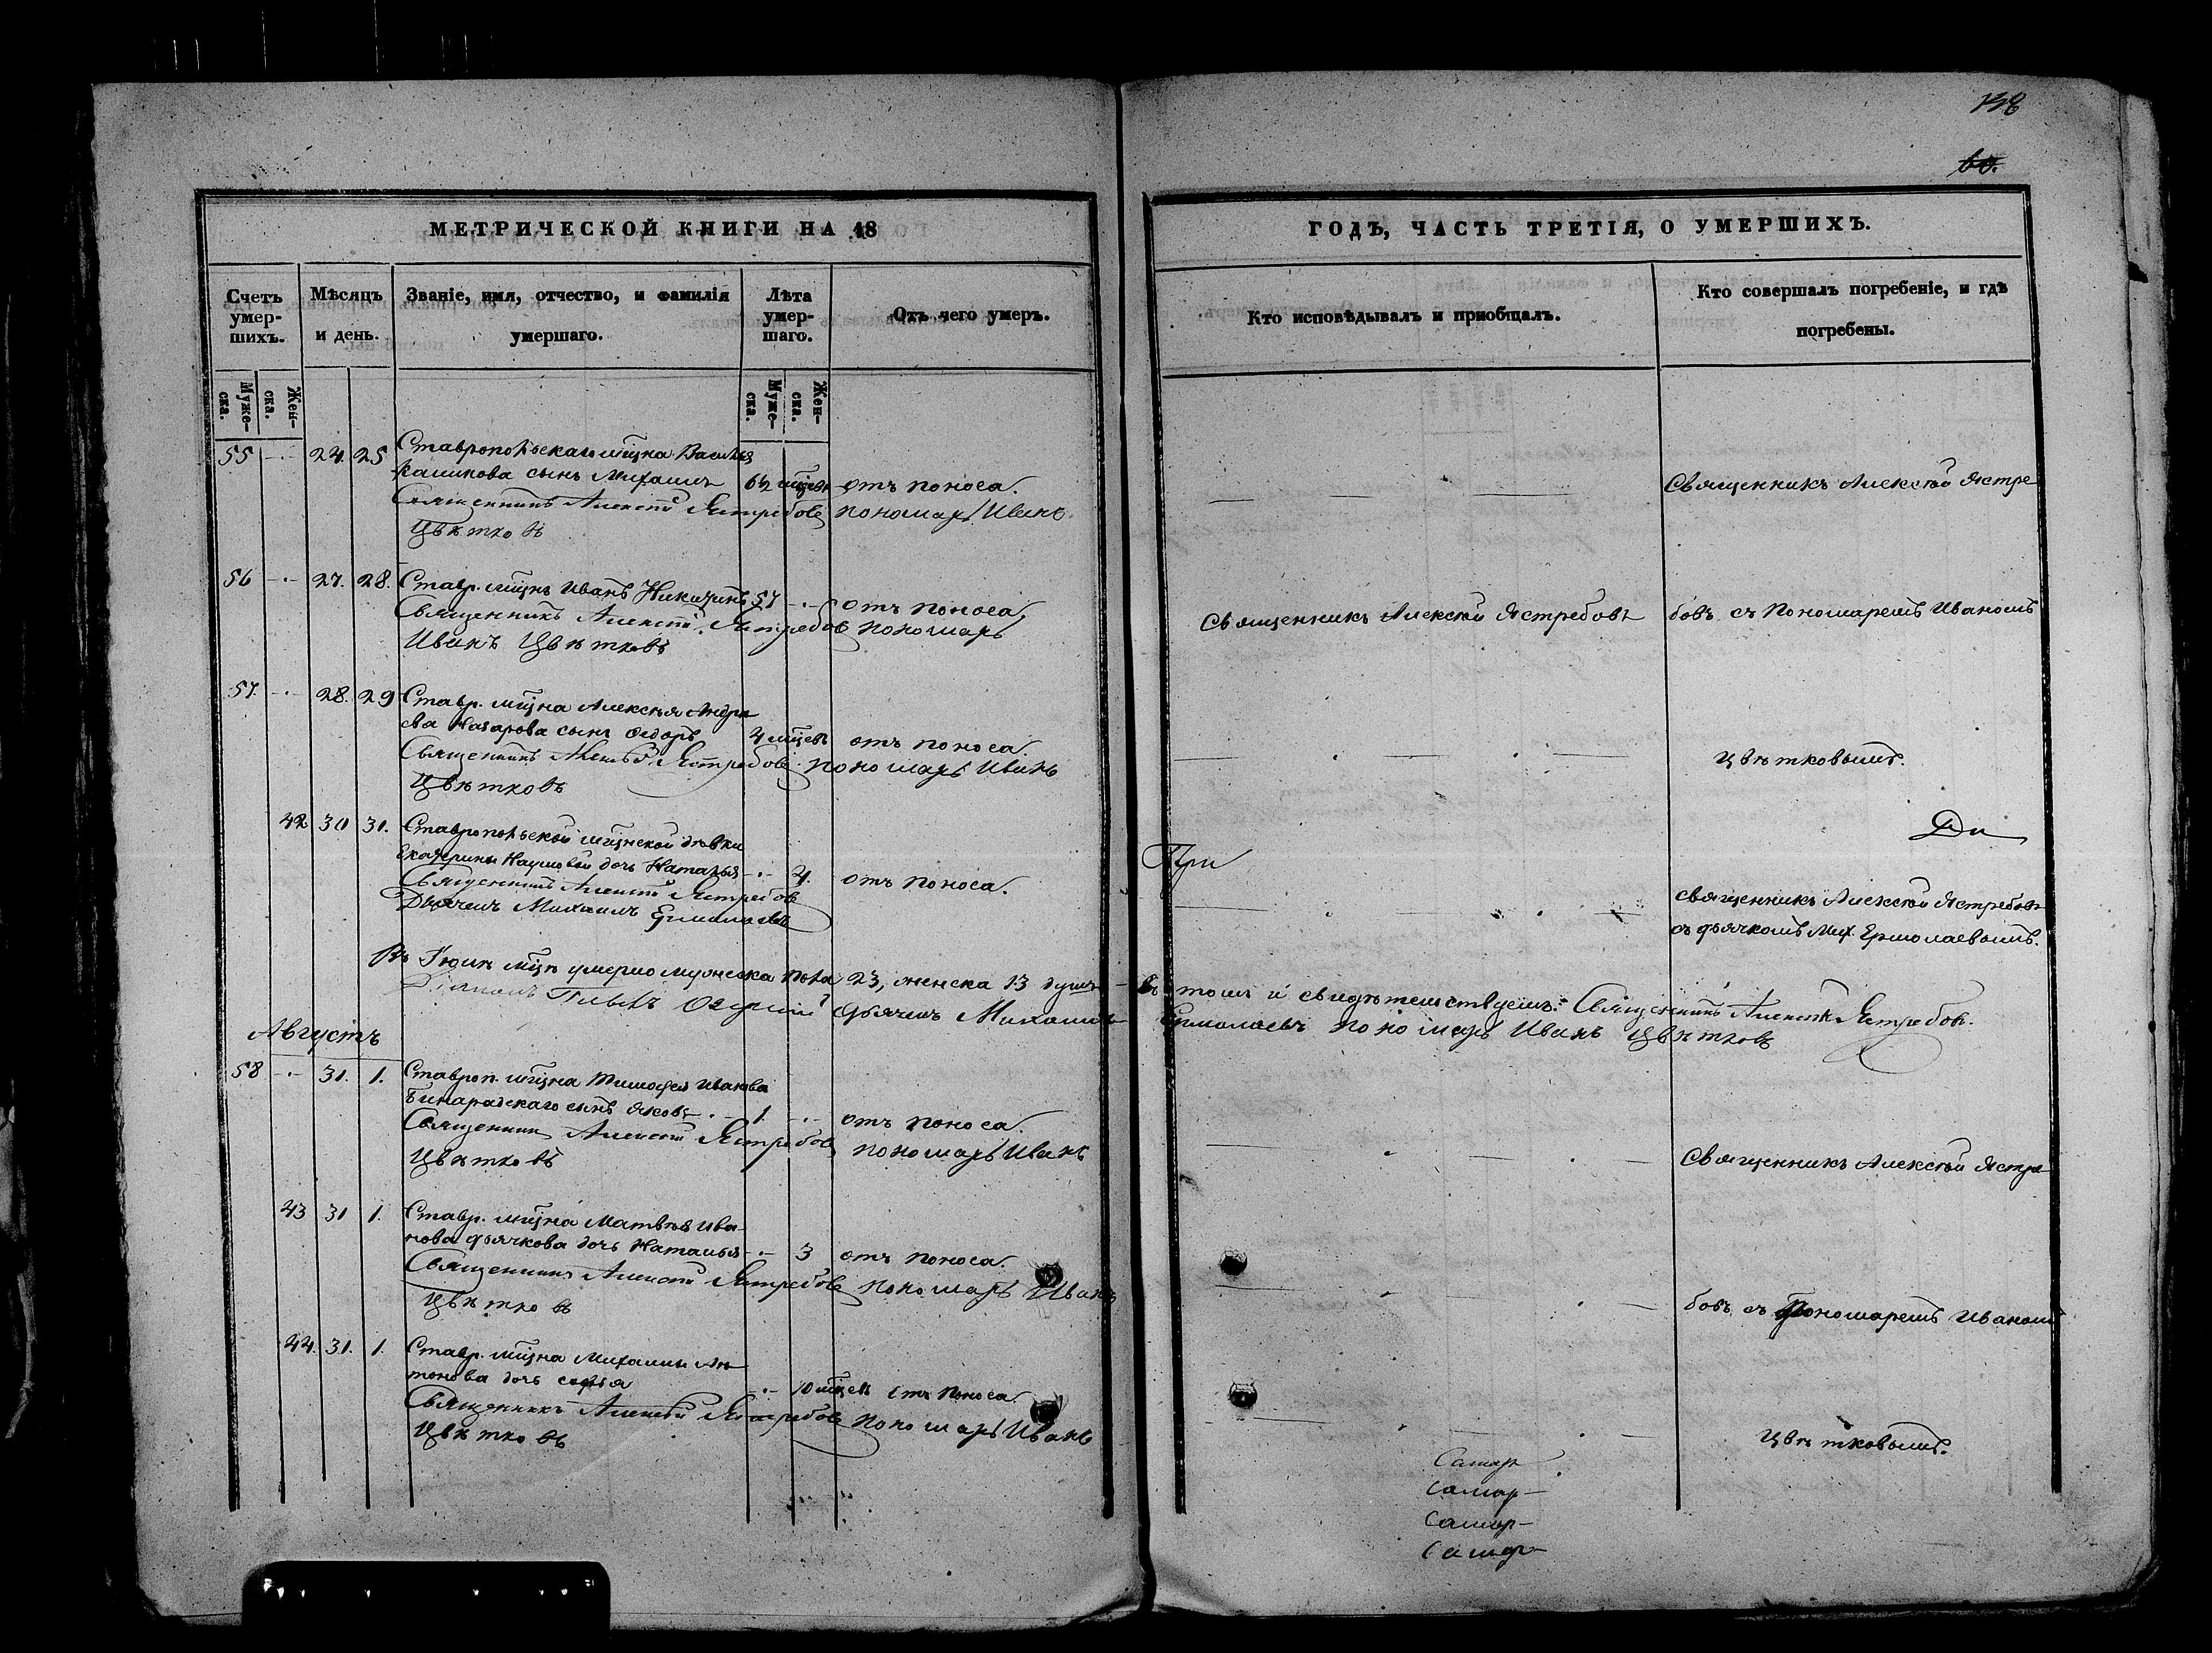 138
60.
МЕТРИЧЕСКОЙ КНИГИ НА 18
Счетъ умер-шихъ.
Мѣсяцъ и день.
Званіе, имя, отчество, и фамилія умершаго.
Лѣта умер-шаго.
Отъ чего умеръ.
Муже-ска.
Жен-ска.
Муже-ска.
Жен-ска.
55 24. 25 Ставропольскаго мѣщна Василья
сынъ Михаилъ отъ поноса.
Священникъ Алексѣй Ястребовъ пономарь Иванъ
Цвѣтковъ
56 27. 28. Ставр. мѣщнъ Иванъ Никитинъ 57 отъ поноса
Священникъ Алексѣй Ястребовъ пономарь
Иванъ Цвѣтковъ
57. 28. 29 Ставр. мѣщна Алексѣя Андре
ева Назарова сынъ Ѳедоръ 4 мѣцев отъ поноса.
Священникъ Алексѣй Ястребовъ. пономарь Иванъ
Цвѣтковъ
42 30 31. Ставропольской мѣщнской дѣвки
Екатерины Наумовой дочь Наталья 4. отъ поноса.
Священникъ Алексѣй Ястребовъ
Дьячекъ Михаилъ Ермолаевъ
Въ Іюлѣ мцѣ умерло мужеска пола 23, женска 13 душъ
Діаконъ Павелъ Дьячекъ Михаилъ
Августъ
58 31. 1. Ставроп. мѣщна Тимофея Иванова
сынъ Яковъ 1 отъ поноса.
Священникъ Алексѣй Ястребовъ пономарь Иванъ
Цвѣтковъ
43 31 1. Ставр. мѣщна Матвѣя Ива-
нова Дьячкова дочь Наталья 3 отъ поноса.
Священникъ Алексѣй Ястребовъ пономарь Иванъ
Цвѣтковъ
44. 31. 1. Ставр. мѣщна Михаила Ан-
тонова дочь Софья 10 мѣцев отъ поноса.
Священникъ Алексѣй Ястребовъ пономарь Иванъ
Цвѣтковъ
ГОДЪ, ЧАСТЬ ТРЕТІЯ, О УМЕРШИХЪ.
Кто исповѣдывалъ и пріобщалъ.
Кто совершалъ погребеніе, и гдѣ погребены.
Священникъ Алексѣй Ястре
Священникъ Алексѣй Ястребовъ бовъ съ Пономаремъ Иваномъ
Цвѣтковымъ.
При
священникъ Алексѣй Ястребовъ
съ дьячкомъ Мих. Ермолаевымъ.
въ томъ и свидѣтельствуемъ: Священникъ Алексѣй Ястребовъ.
Ермолаевъ пономарь Иванъ Цвѣтковъ
Священникъ Алексѣй Ястре
бовъ съ Пономаремъ Иваномъ
Цвѣтковымъ.
Самар
Самар-
Самар-
Самар-